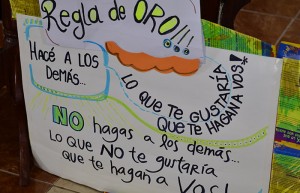 Regla de ORO!!!
HACÉ A LOS
DEMÁS...
LO QUE TE GUSTARÍA
QUE TE HAGAN A VOS!
NO hagas a los demás...
Lo que NO te gustaría
que te hagan a Vos!